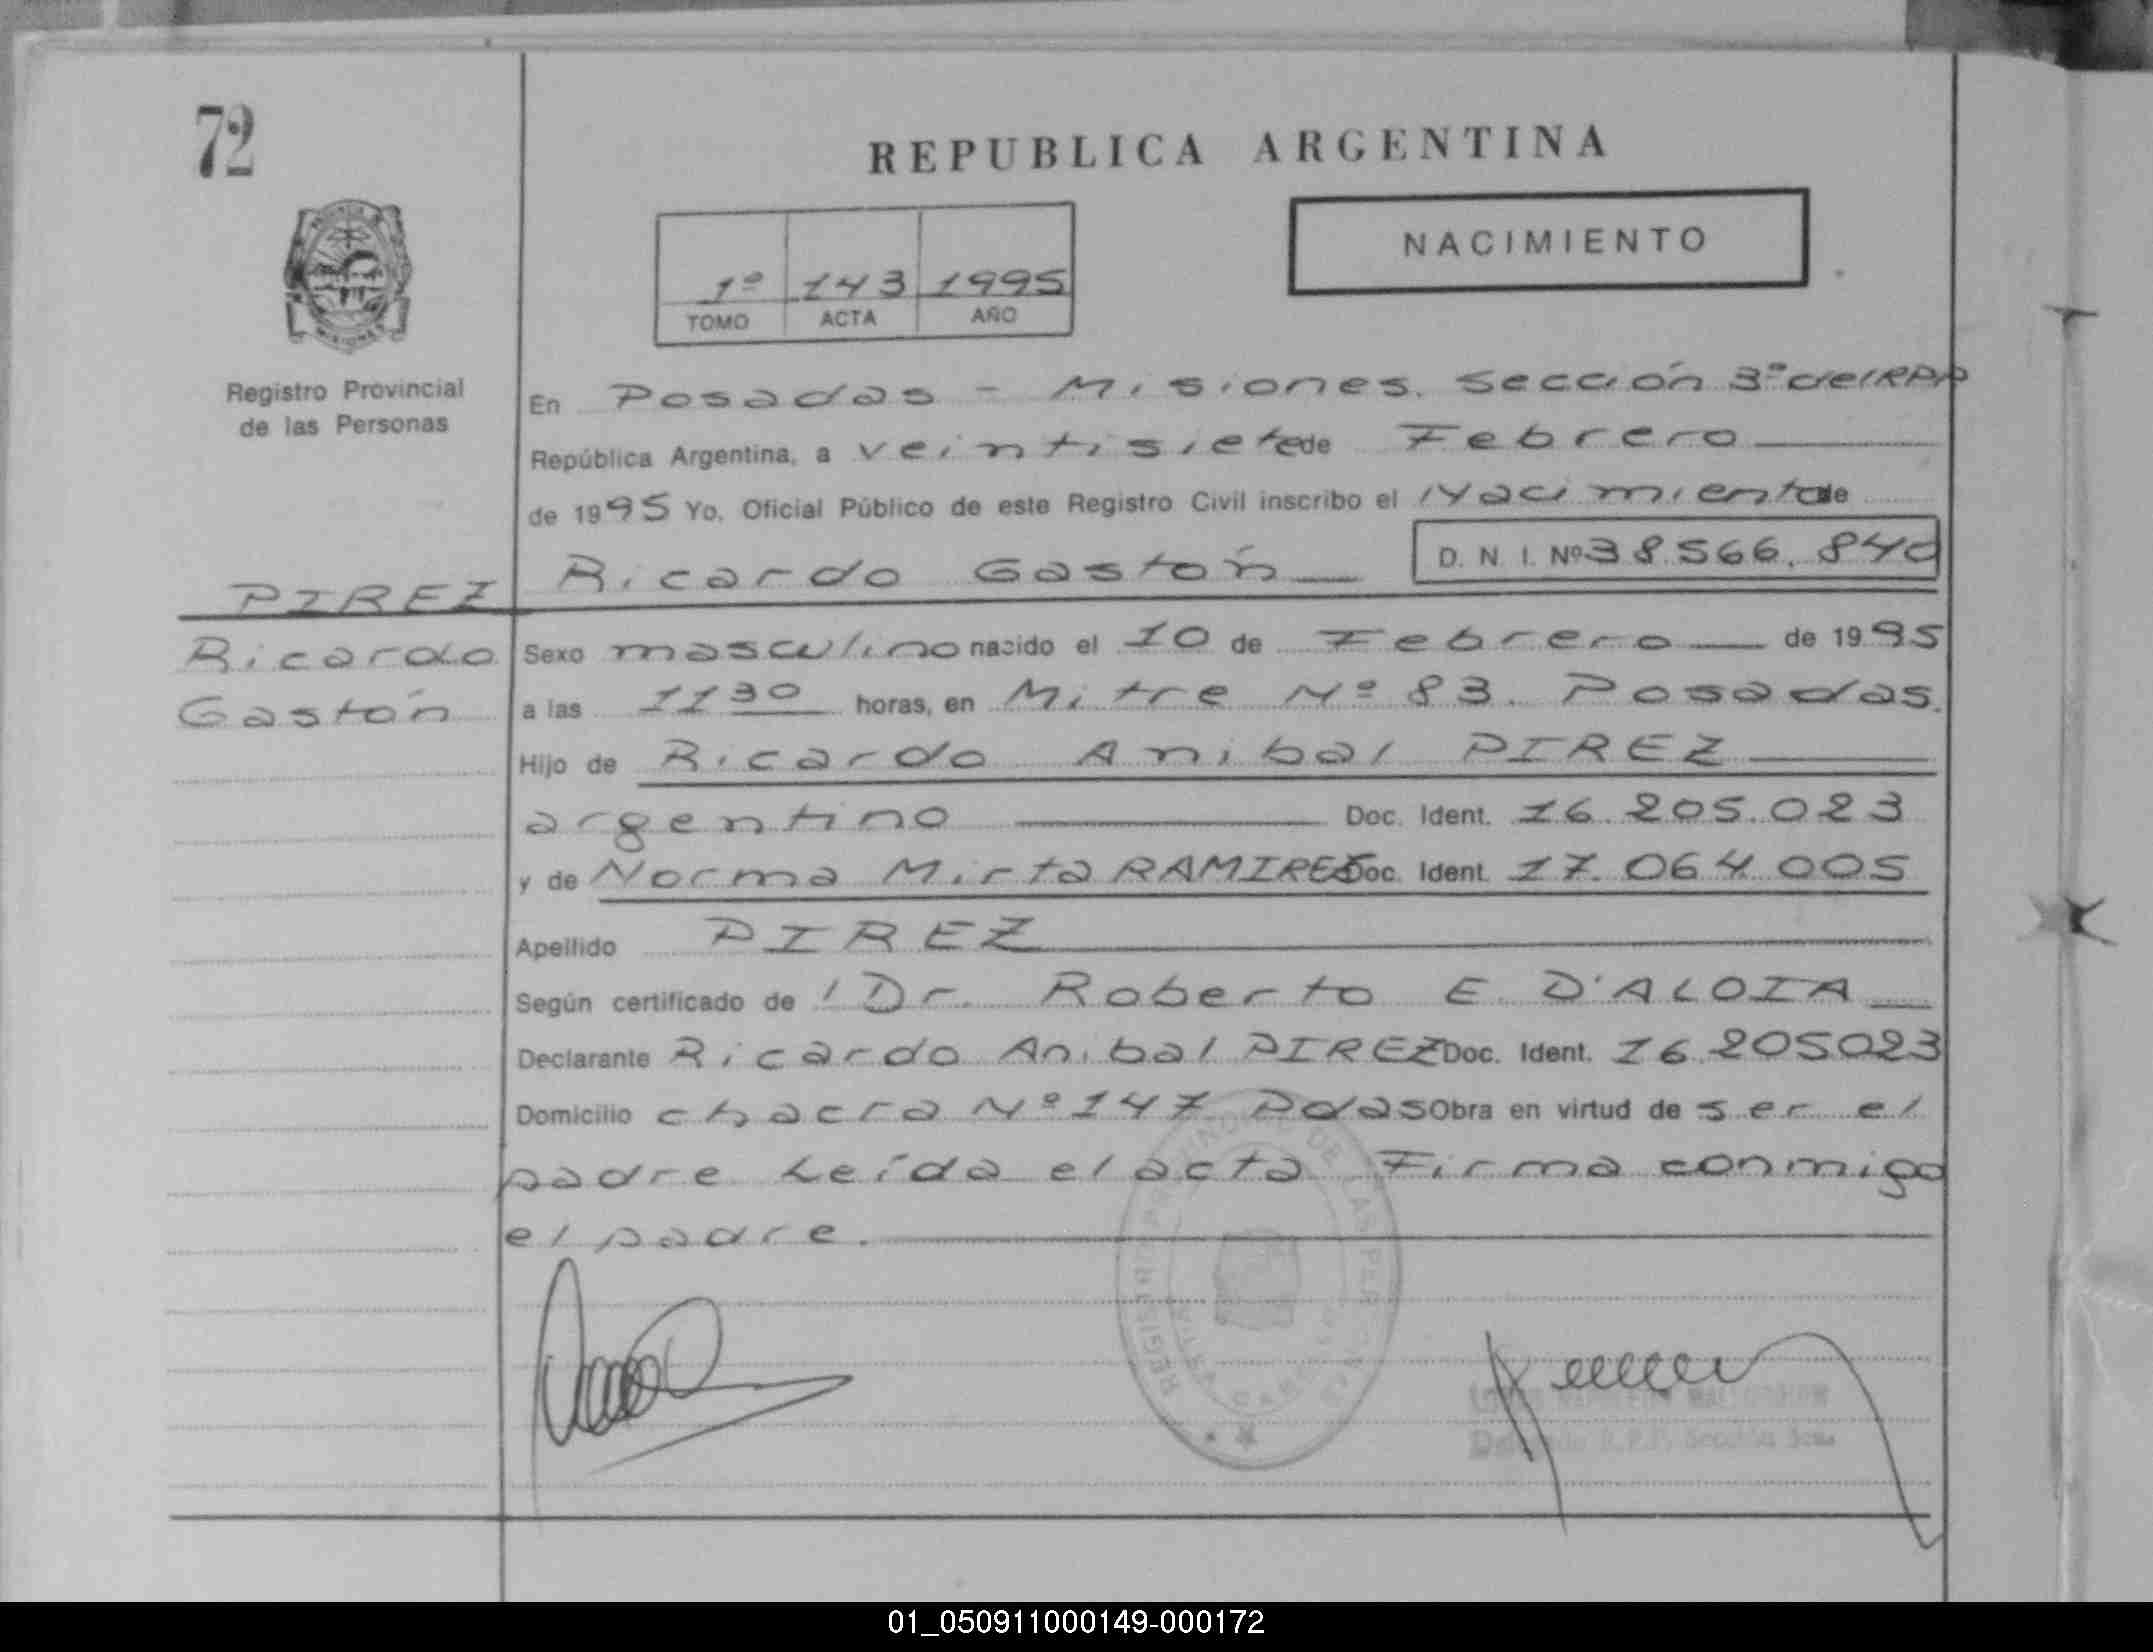 72
REPUBLICA ARGENTINA
NACIMIENTO
1º 143 1995
TOMO ACTA AÑO
Registro Provincial
de las Personas
En Posadas - Misiones. Sección 3º del RPP
República Argentina, a veintisiete de Febrero
de 1995 Yo, Oficial Público de este Registro Civil inscribo el Nacimiento de
Ricardo Gastón D. N. I. Nº 38.566.840
PIREZ
Ricardo
Gastón
Sexo masculino nacido el 10 de Febrero de 1995
a las 11 30 horas, en Mitre Nº 83. Posadas.
Hijo de Ricardo Anibal PIREZ
argentino Doc. Ident. 16.205.023
y de Norma Mirta RAMIREZ Doc. Ident. 17.064.005
Apellido PIREZ
Según certificado de l Dr. Roberto E. D'ALOIA
Declarante Ricardo Anibal PIREZ Doc. Ident. 16.205023
Domicilio chacra Nº 147 Pdas Obra en virtud de ser el
padre Leída el acta Firma conmigo
el padre.
REGISTRO PROVINCIAL DE LAS PERSONAS
Sección 3era
01_050911000149-000172